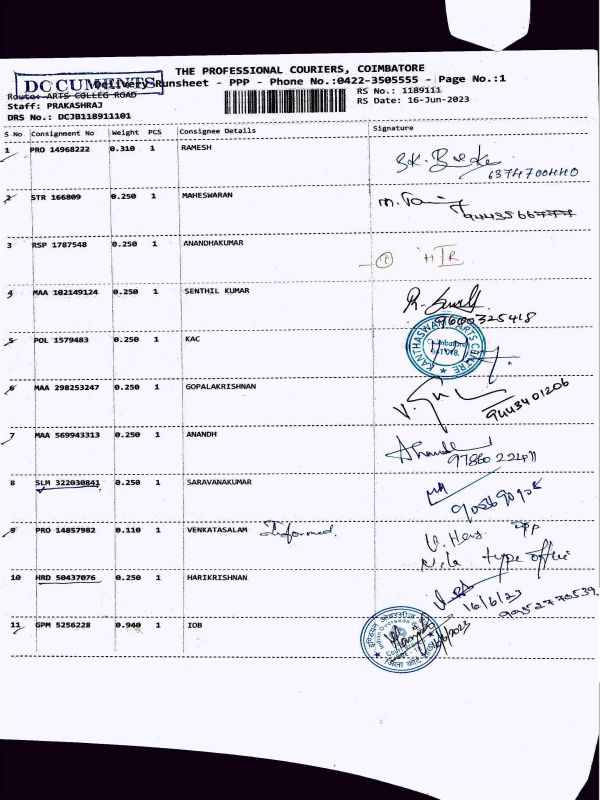 THE PROFESSIONAL COURIERS, COIMBATORE
DOCUMENTS
Delivery Runsheet - PPP - Phone No.:0422-3505555 - Page No.:1
Route: ARTS COLLEG ROAD
RS No.: 1189111
Staff: PRAKASHRAJ
RS Date: 16-Jun-2023
DRS No.: DCJB118911101
S No Consignment No Weight PCS Consignee Details Signature
1 PRO 14968222 0.310 1 RAMESH
6374700440
2 STR 166809 0.250 1 MAHESWARAN
3 RSP 1787548 0.250 1 ANANDHAKUMAR
4 MAA 102149124 0.250 1 SENTHIL KUMAR
9600325418
5 POL 1579483 0.250 1 KAC
KANTHASWAMY ARTS CENTRE
Coimbatore
641 018.
6 MAA 298253247 0.250 1 GOPALAKRISHNAN
9443401206
7 MAA 569943313 0.250 1 ANANDH
Anandh
8 SLM 322030841 0.250 1 SARAVANAKUMAR
9 PRO 14857982 0.110 1 VENKATASALAM Informed.
opp
type office
10 HRD 50437076 0.250 1 HARIKRISHNAN
16/6/23
9952770539
11 GPM 5256228 0.940 1 IOB
Indian Overseas Bank
16/6/2023